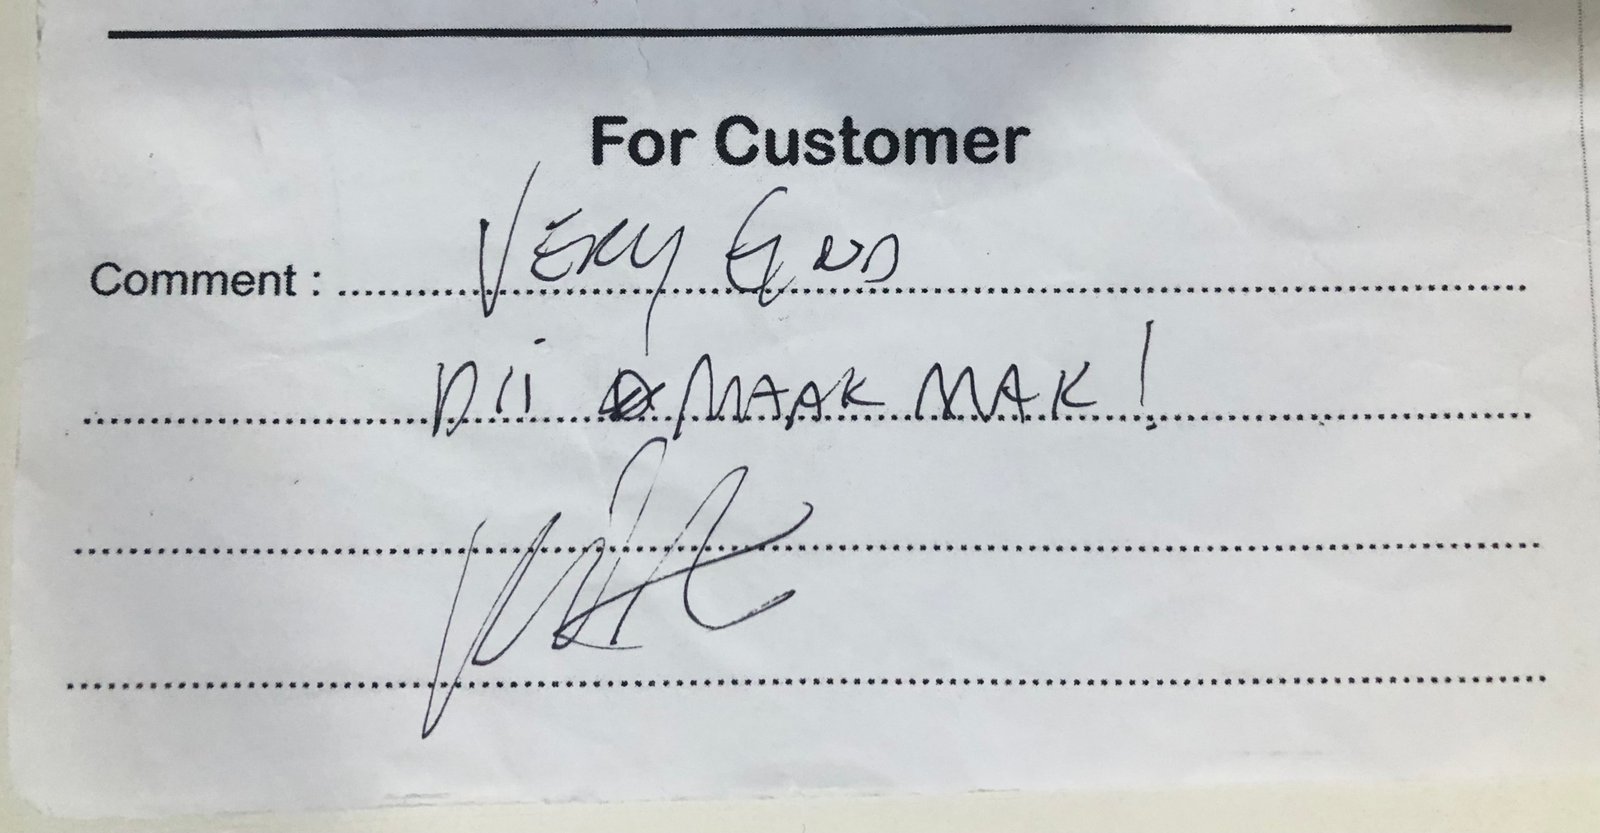 For Customer
Comment : VERY GOOD
DII MAAK MAK!